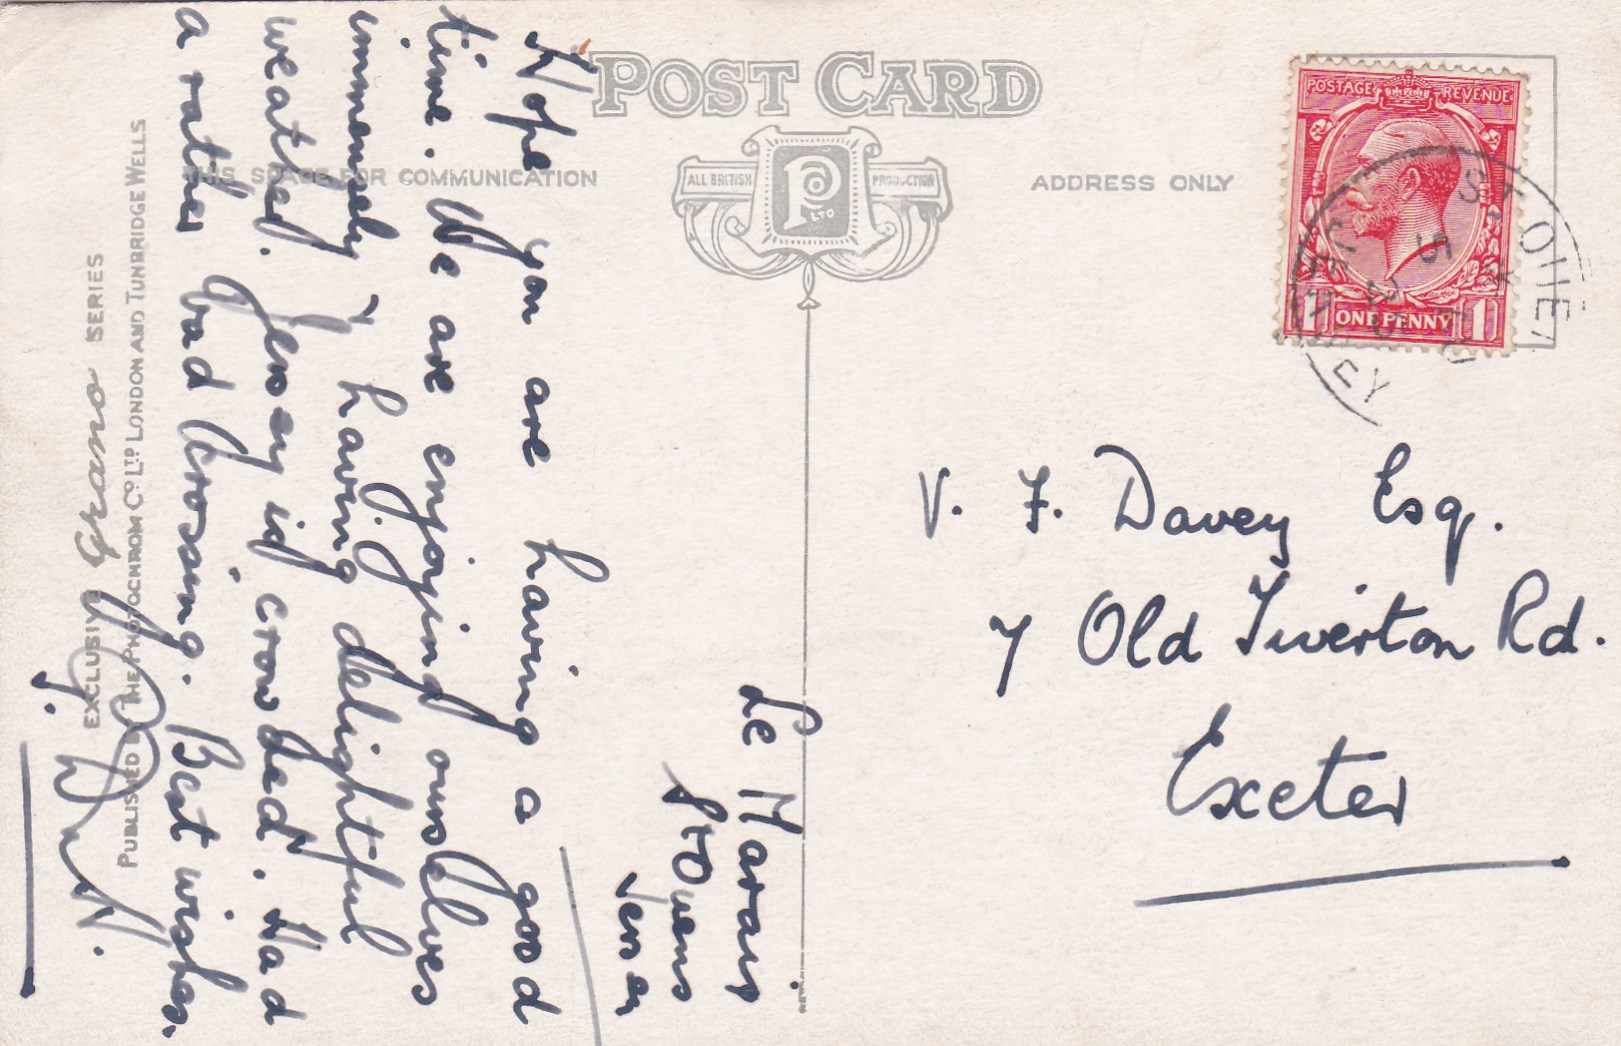 POST CARD
THIS SPACE FOR COMMUNICATION
ADDRESS ONLY
ALL BRITISH PRODUCTION
P Co LTD
POSTAGE REVENUE
ONE PENNY
1 1
ST. OUEN
JERSEY
V. F. Davey Esq.
7 Old Tiverton Rd.
Exeter
Le Marais
St Ouens
Jersey
Hope you are having a good
time. We are enjoying ourselves
immensely & having delightful
weather. Jersey is crowded. Had
a rather bad crossing. Best wishes.
EXCLUSIVE Grano SERIES
PUBLISHED BY THE PHOTOCHROM CO. LTD LONDON AND TUNBRIDGE WELLS